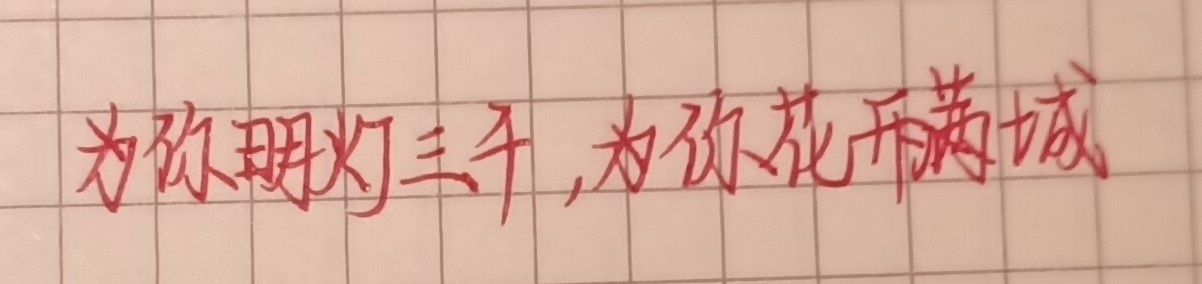 为你明灯三千,为你花开满城